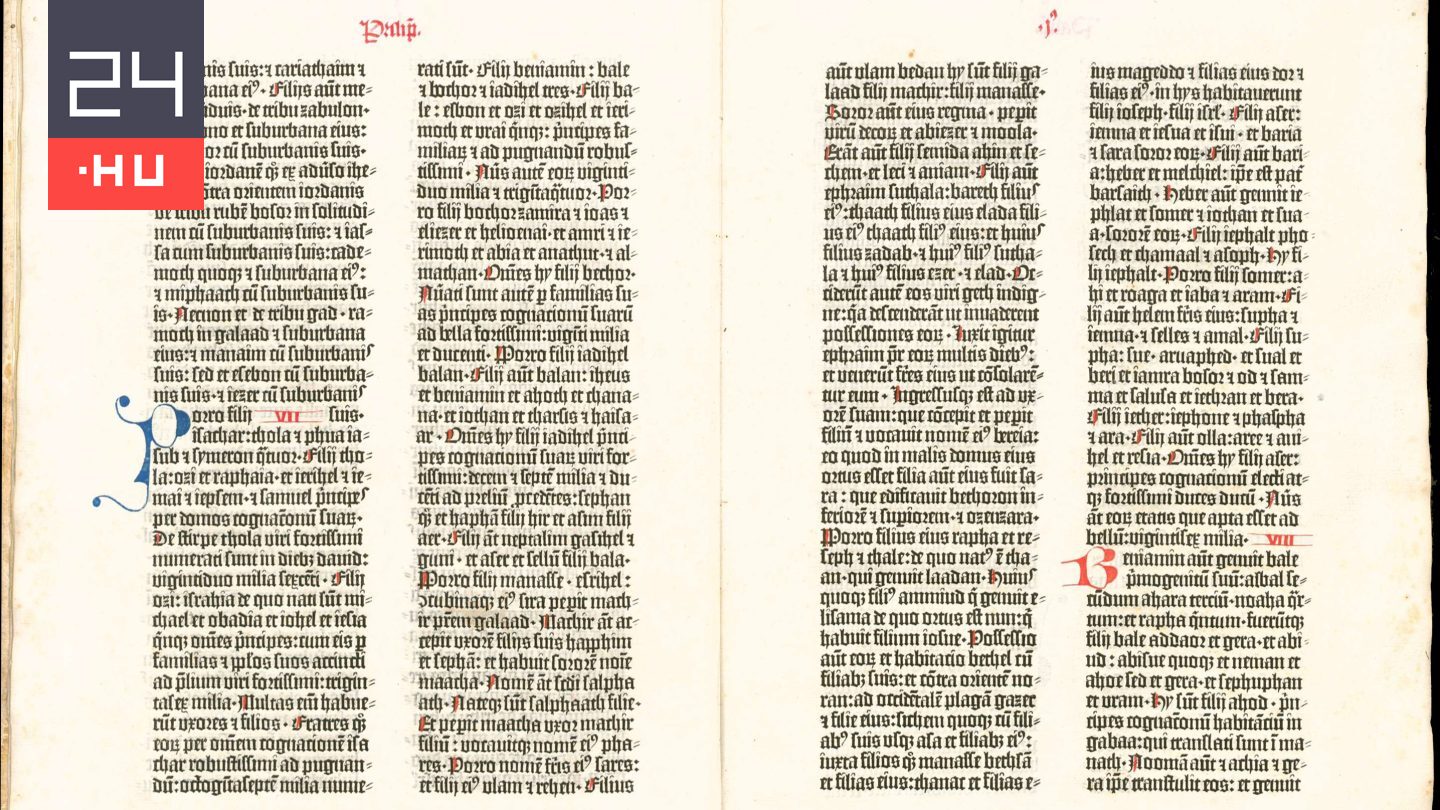 24
.HU
Paralip̄.
nis suis: ⁊ cariathaim ⁊
ana ei⁹. Filijs aūt me-
duis. de tribu zabulon.
no et suburbana eius:
or cū suburbanis suis.
iordanē qꝫ ex adūso ihe-
ōtra orientem iordanis
de tribu rubē bosor in solitudi-
nem cū suburbanis suis: ⁊ ias-
sa cum suburbanis suis: cade-
moth quoqꝫ ⁊ suburbana ei⁹:
⁊ miphaath cū suburbanis su-
is. Necnon et de tribu gad . ra-
moth in galaad ⁊ suburbana
eius: ⁊ manaim cū suburbanis
suis: sed et esebon cū suburba-
nis suis. ⁊ iezer cū suburbanis
suis.
VII
Porro filij
isachar: thola ⁊ phua ia-
sub ⁊ symeron q̄tuor. Filij tho-
la: ozi et raphaia. et ierihel ⁊ ie-
mai ⁊ iepsem. ⁊ samuel p̄ncipes
per domos cognac̄onū suaꝝ.
De stirpe thola viri fortissimi
numerati sunt in diebꝫ david:
vigintiduo milia sexcēti. Filij
ozi: israhia de quo nati sūt mi-
chael et obadia et iohel et iesia
q̄nqꝫ om̄es p̄ncipes: cum eis ꝑ
familias ⁊ pp̄los suos accincti
ad p̄lium viri fortissimi: trigin-
tasex milia. Multas eni habue-
rūt vxores ⁊ filios. Fratres qꝫ
eoꝝ per om̄em cognacionē isa
char robustissimi ad pugnan-
dū: octogitaseptē milia nume-
rati sūt. Filij beniamin: bale
⁊ bochor ⁊ iadihel tres. Filij ba-
le: esbon et ozi et ozihel et ieri-
moth et vrai q̄nqꝫ: p̄ncipes fa-
miliaꝝ ⁊ ad pugnandū robus-
tissimi. Nūs autē eoꝝ viginti-
duo milia ⁊ trigitaq̄tuor. Por-
ro filij bochor zamira ⁊ ioas ⁊
eliezer et helioenai. et amri ⁊ ie-
rimoth et abia et anathut. ⁊ al-
mathan. Om̄es hy filij bechor.
Nūati sunt autē ꝑ familias su-
as p̄ncipes cognacionū suarū
ad bella fortissimi: vigiti milia
et ducenti. Porro filij iadihel
balan. Filij aūt balan: iheus
et beniamin et ahoth et chana-
na. et iothan et tharsis ⁊ haisa-
ar. Om̄es hy filij iadihel p̄nci-
pes cognacionū suaꝝ viri for-
tissimi: decem ⁊ septē milia ⁊ du-
cēti ad preliū p̄cedētes: sephan
qꝫ et haphā filij hir et asim filij
aer. Filij āt neptalim gasihel ⁊
guni. et aser et sellū filij bala.
Porro filij manasse. esrihel:
Ɔcubinaqꝫ ei⁹ sira pepit mach-
ir p̄rem galaad. Machir āt ac-
cepit vxorē filijs suis happhim
et sephā: et habuit sororē noīe
maacha. Nomē āt scdi salpha
ath. Nateqꝫ sūt salphaath filie.
Et pepit maacha vxor machir
filiū: vocauitqꝫ nomē ei⁹ pha-
res. Porro nomē fr̄is ei⁹ sares:
et filij ei⁹ vlam ⁊ rehen. Filius
aūt vlam bedan hy sūt filij ga-
laad filij machir: filij manasse.
Soror aūt eius regina . pepit
virū decoꝝ et abiezer ⁊ moola.
Erāt aūt filij semida ahin et se-
chem. et leci ⁊ aniam. Filij aūt
ephraim suthala: bareth filius
ei⁹: thaath filius eius elada fili-
us ei⁹ thaath fili⁹ eius: et huius
filius zadab. ⁊ hui⁹ fili⁹ sutha-
la ⁊ hui⁹ filius ezer. ⁊ elad. Oc-
ciderūt autē eos viri geth indig-
ne: q̄a descenderāt ut inuaderent
possessiones eoꝝ. Luxit igitur
ephraim p̄r eoꝝ multis dieb⁹:
et venerūt fr̄es eius ut cōsolarē-
tur eum. Ingressusqꝫ est ad vx-
orē suam: que cōcepit et pepit
filiū ⁊ vocauit nomē ei⁹ bereia:
eo quod in malis domus eius
ortus esset filia aūt eius fuit sa-
ra: que edificauit bethoron in-
feriorē ⁊ supiorem. ⁊ ozenzara.
Porro filius eius rapha et re-
seph ⁊ thale: de quo nat⁹ ē tha-
an. qui genuit laadan. Huius
quoqꝫ fili⁹ ammiud q̄ genuit e-
lisama de quo ortus est nun: q̄
habuit filium iosue. Possessio
aūt eoꝝ et habitacio bethel cū
filiabꝫ suis: et cōtra orientē no-
ran: ad occidētalē plagā gazer
⁊ filie eius: sichem quoqꝫ cū fili-
ab⁹ suis vsqꝫ asa et filiabꝫ ei⁹:
iuxta filios qꝫ manasse bethsā
et filias eius: thanac et filias e-
ius mageddo ⁊ filias eius dor ⁊
filias ei⁹. in hys habitauerunt
filij ioseph. filij isrl̄. Filij aser:
iemna et iesua et isui . et baria
⁊ sara soror eoꝝ. Filij aūt bari-
a: heber et melchiel: ip̄e est pat̄
barsaith. Heber aūt genuit ie-
phlat et somer ⁊ iothan et sua-
a. sororē eoꝝ. Filij iephalt pho-
sech et chamaal ⁊ asoph. Hy fi-
lij iephalt. Porro filij somer: a-
hi et roaga et iaba ⁊ aram. Fi-
lij aūt helem fr̄is eius: supha ⁊
iemna. ⁊ selles ⁊ amal. Filij su-
pha: sue. arnaphed. et sual et
beri et iamra bosor ⁊ od ⁊ sam-
ma et salusa et iethran et bera.
Filij iether: iephone ⁊ phaspha
⁊ ara. Filij aūt olla: aree ⁊ ani-
hel et resia. Om̄es hy filij aser:
principes cognacionū electi at-
qꝫ fortissimi duces ducū. Nūs
āt eoꝝ etatis que apta esset ad
bellū: vigintisex milia.
VIII
Beniamin aūt genuit bale
p̄mogenitū suū: asbal se-
cūdum ahara terciū. noaha q̄r-
tum: et rapha q̄ntum. fuerūtqꝫ
filij bale addaor et gera. et abi-
ud: abisue quoqꝫ et neman et
ahoe sed et gera. et sephuphan
et vram. Hy sūt filij ahod. p̄n-
cipes cognac̄onū habitāciū in
gabaa: qui translati sunt ī ma-
nath. Nooman aūt ⁊ achia ⁊ ge-
ra ip̄e transtulit eos: et genuit